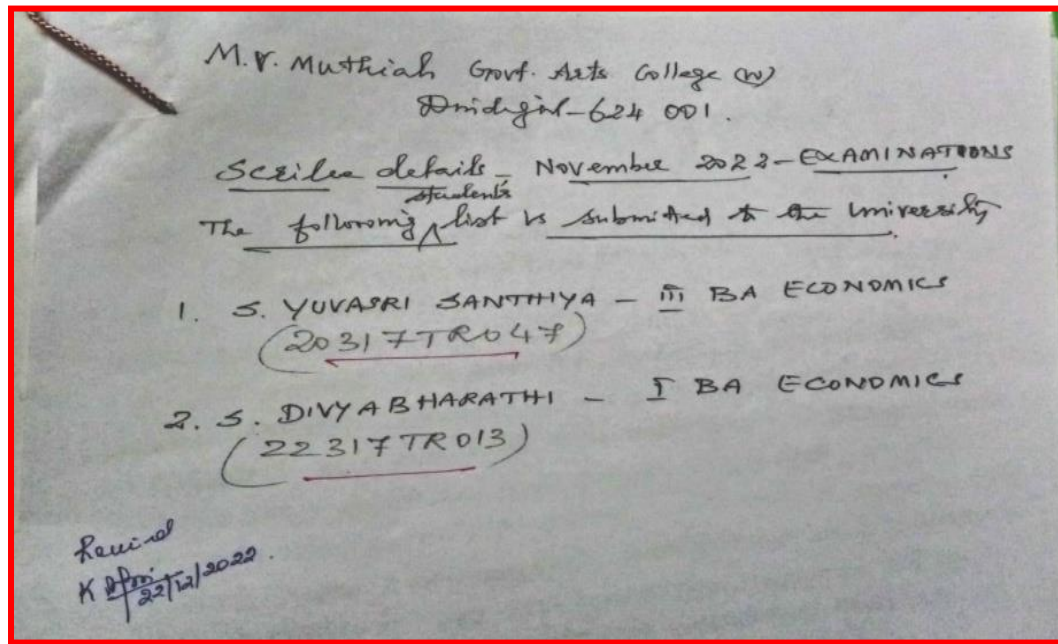 M.V. Muthiah Govt. Arts College (W)
Dindigul-624 001.
Scribe details - November 2022 - EXAMINATIONS
students
The following ^ list is submitted to the University.
1. S. YUVASRI SANTHIYA - III BA ECONOMICS
(20317TR047)
2. S. DIVYABHARATHI - I BA ECONOMICS
(22317TR013)
K
22/12/2022.